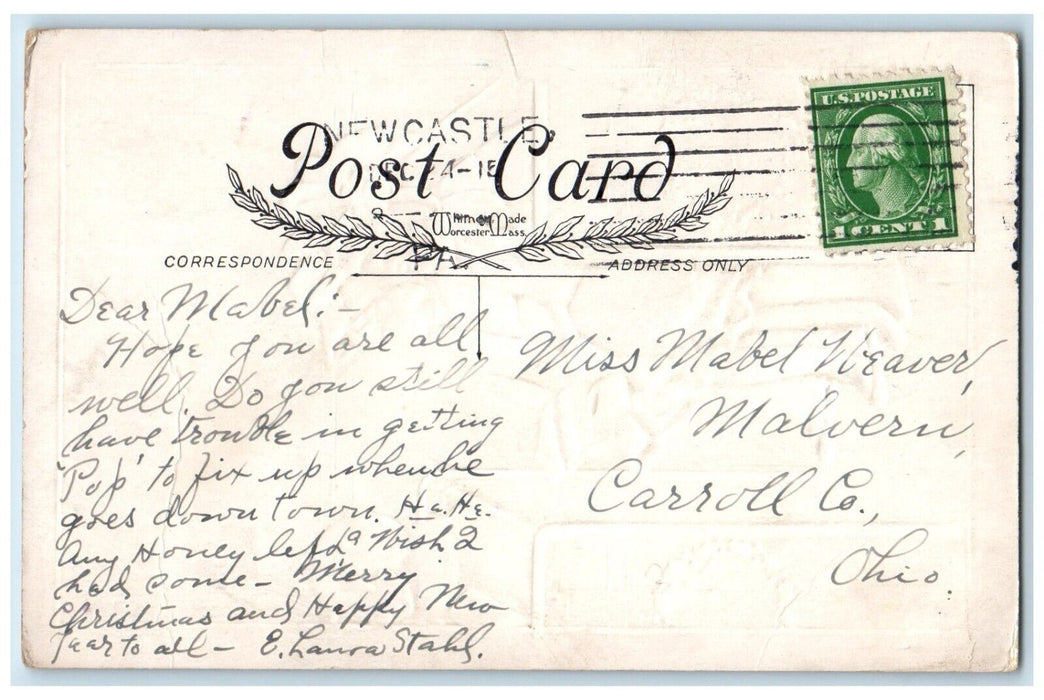 U.S. POSTAGE
1 CENT 1
NEWCASTLE,
DEC 24-15
PA.
Post Card
Whitney Made
Worcester Mass.
CORRESPONDENCE
ADDRESS ONLY
Dear Mabel:-
Hope you are all
well. Do you still
have trouble in getting
"Pop" to fix up when he
goes down town. Ha. He.
Any Honey left? Wish I
had some - Merry
Christmas and Happy New
Year to all - E. Laura Stahl.
Miss Mabel Weaver,
Malvern,
Carroll Co.,
Ohio.